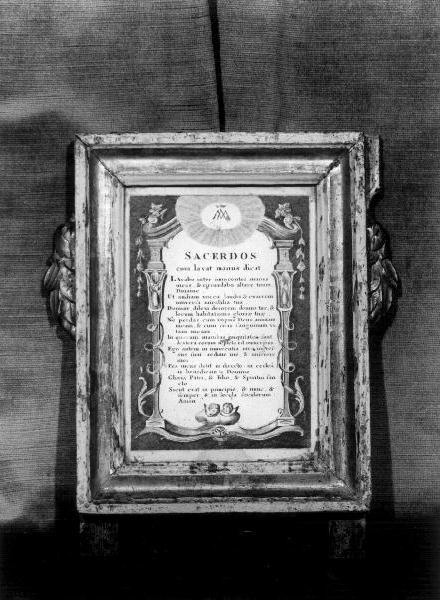 SACERDOS
cum lavat manus dicat
LAvabo inter innocentes manus
meas, & circumdabo altare tuum
Domine
Ut audiam vocem laudis & enarrem
universa mirabilia tua
Domine dilexi decorem domus tuæ, &
locum habitationis gloriæ tuæ
Ne perdas cum impiis Deus animam
meam, & cum viris sanguinum vi
tam meam
In quorum manibus iniquitates sunt
dextera eorum repleta est muneribus
Ego autem in innocentia mea ingressus
sum redime me, & miserere
mei
Pes meus stetit in directo in eccles
iis benedicam te Domine
Gloria Patri, & Filio, & Spiritui San
cto
Sicut erat in principio, & nunc, &
semper, & in sæcula sæculorum
Amen